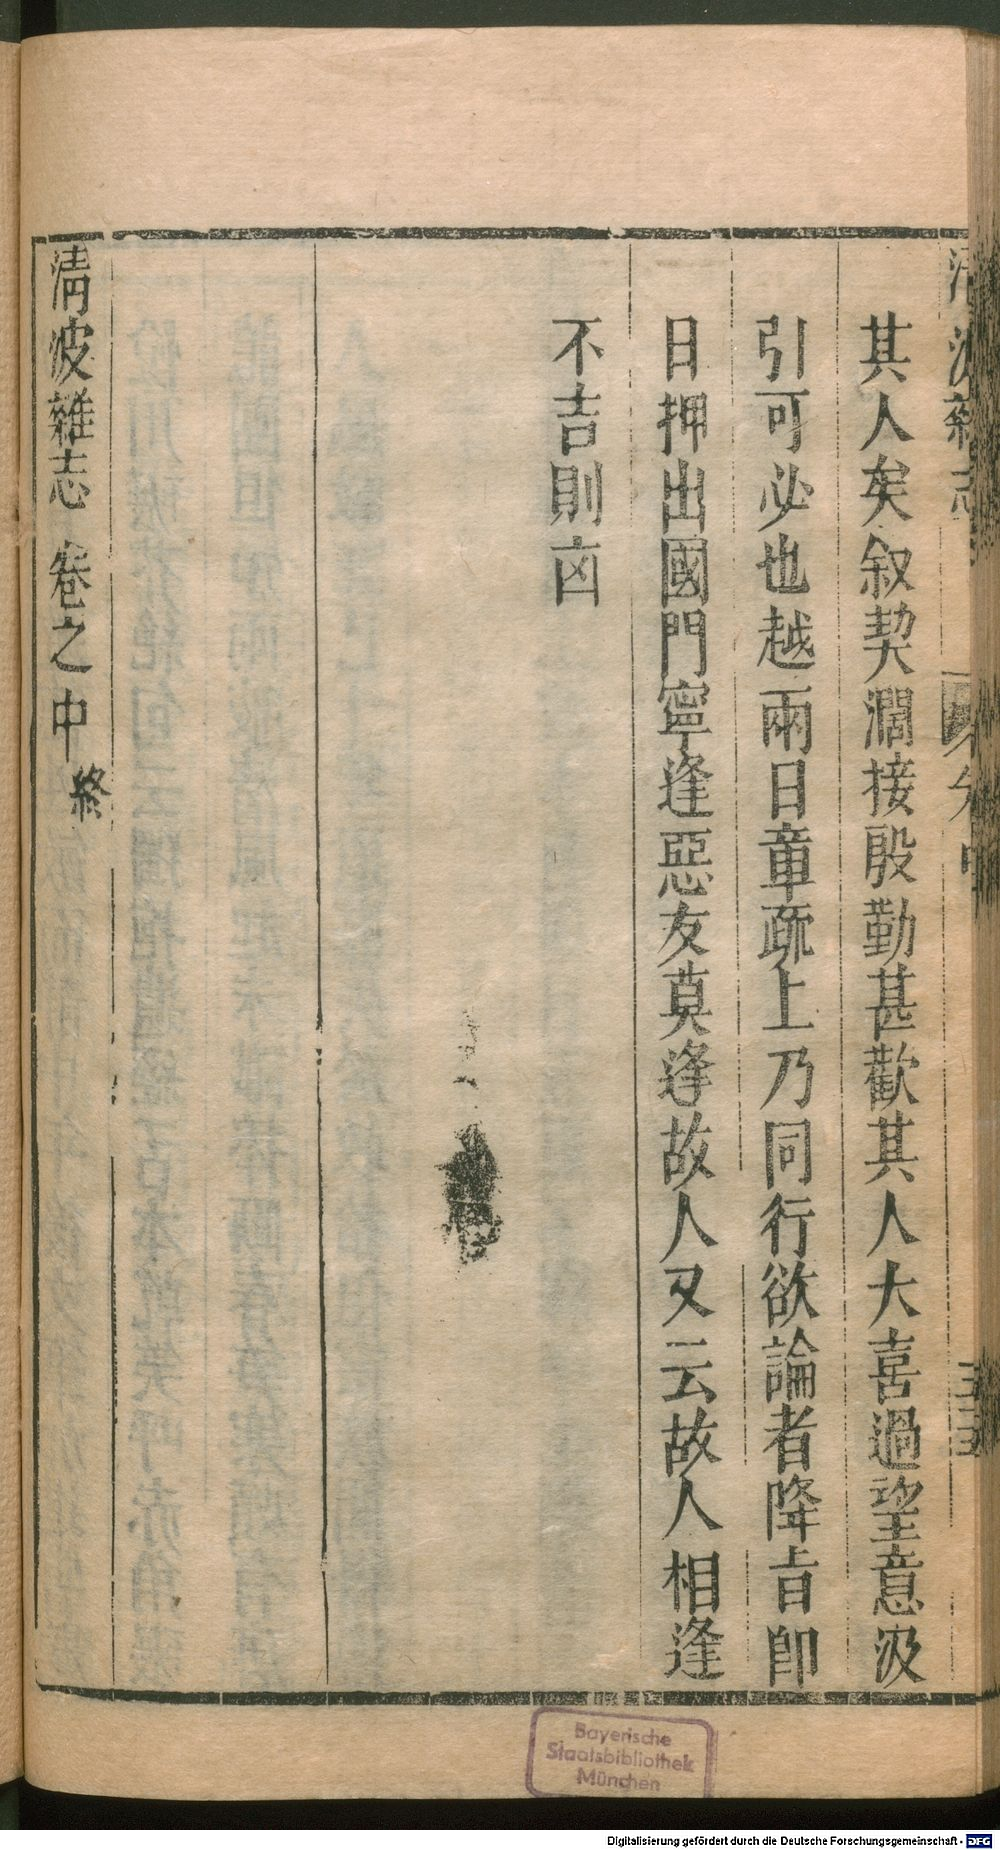 其人矣叙契濶接殷勤甚歡其人大喜過望意汲
引可必也越兩日章疏上乃同行欲論者降旨即
日押出國門寧逢惡友莫逢故人又云故人相逢
不吉則凶
清波雜志 卷之中終
Bayerische
Staatsbibliothek
München
Digitalisierung gefördert durch die Deutsche Forschungsgemeinschaft - DFG